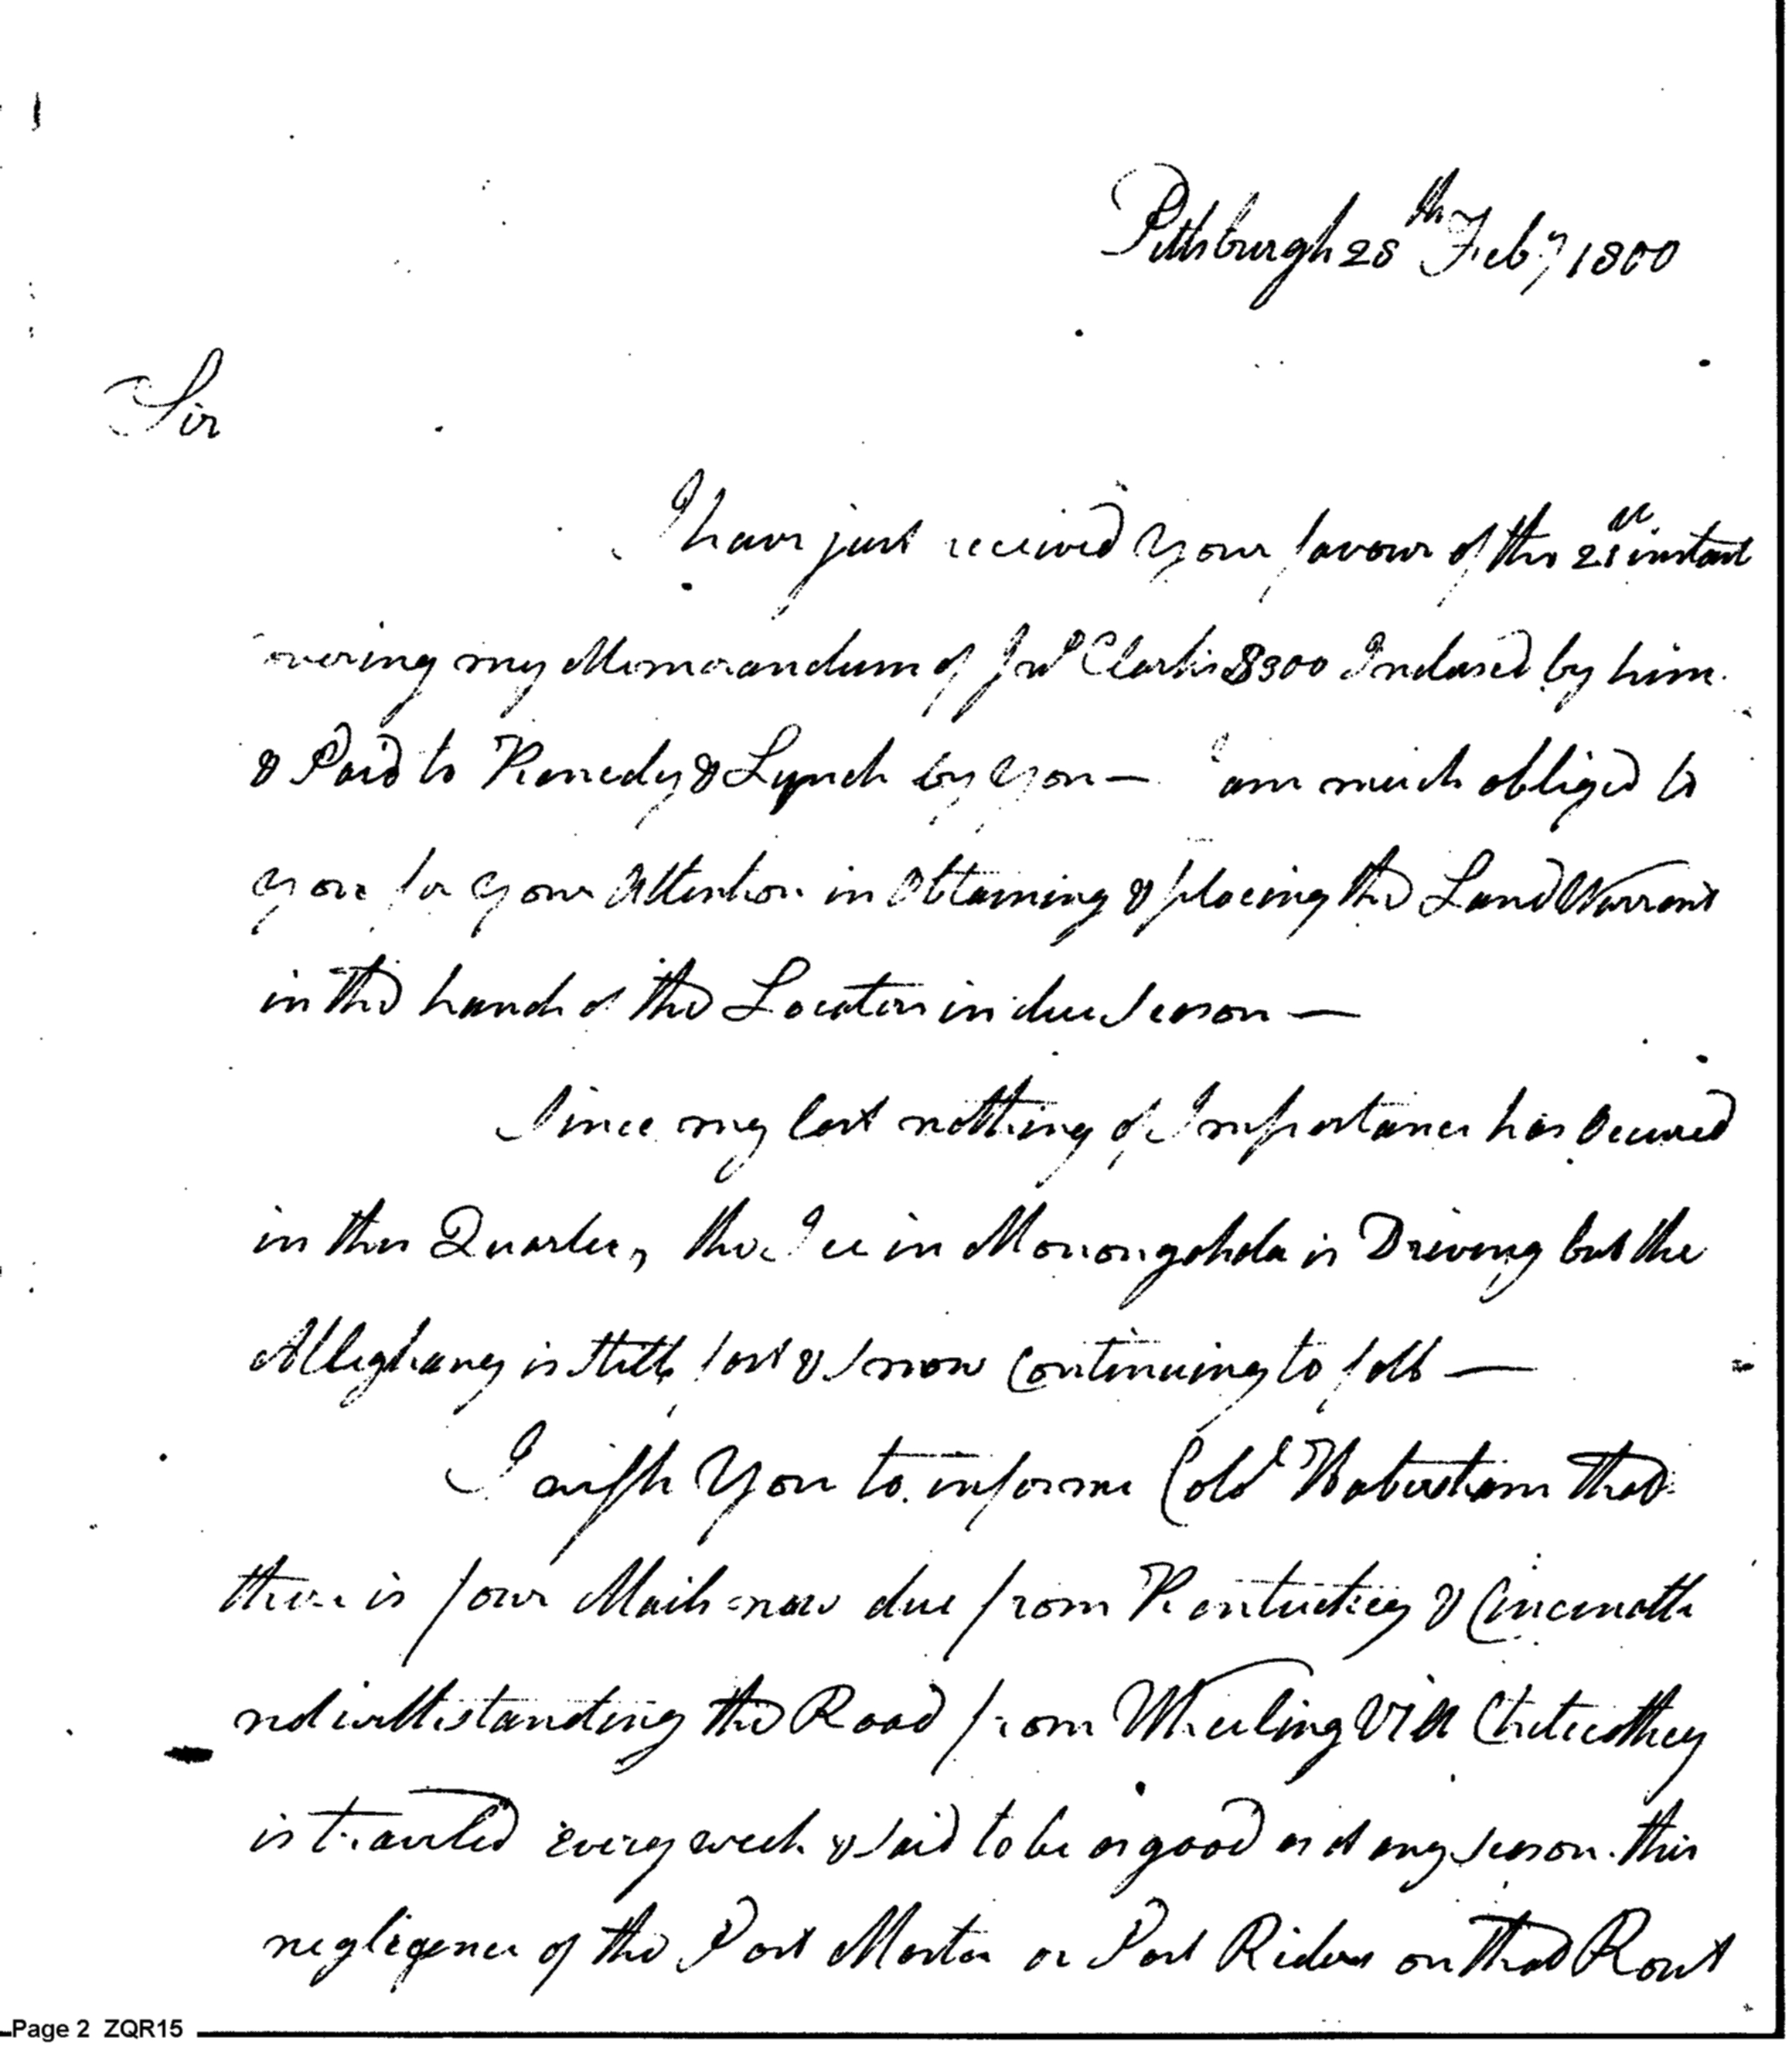 Pittsburgh 28th Feby 1800
Sir
I have just received your favour of the 21st instant
overing my Memorandum of Clarks $300 Indorsed by him
& Paid to Kenedy & Lynch by you — I am much obliged to
you for your Attention in Obtaining & placing the Land Warrants
in the hands of the Locators in due Season —
Since my last nothing of Importance has Occured
in this Quarter, the Ice in Monongahela is Driving but the
Alleghany is Still fast & Snow Continuing to fall —
I wish You to informe Cold Habersham that
there is four Mails now due from Kentuckey & Cincinatti
notwithstanding the Road from Wheeling Via
is traveled every week & Said to be as good as at any Season. this
negligence of the Post Master or Post Riders on that Rout
Page 2 ZQR15